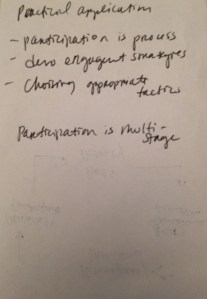 Practical application
- participation is process
- devo engagent
- Choosing appropriate
tactics
Participation is multi-
stage